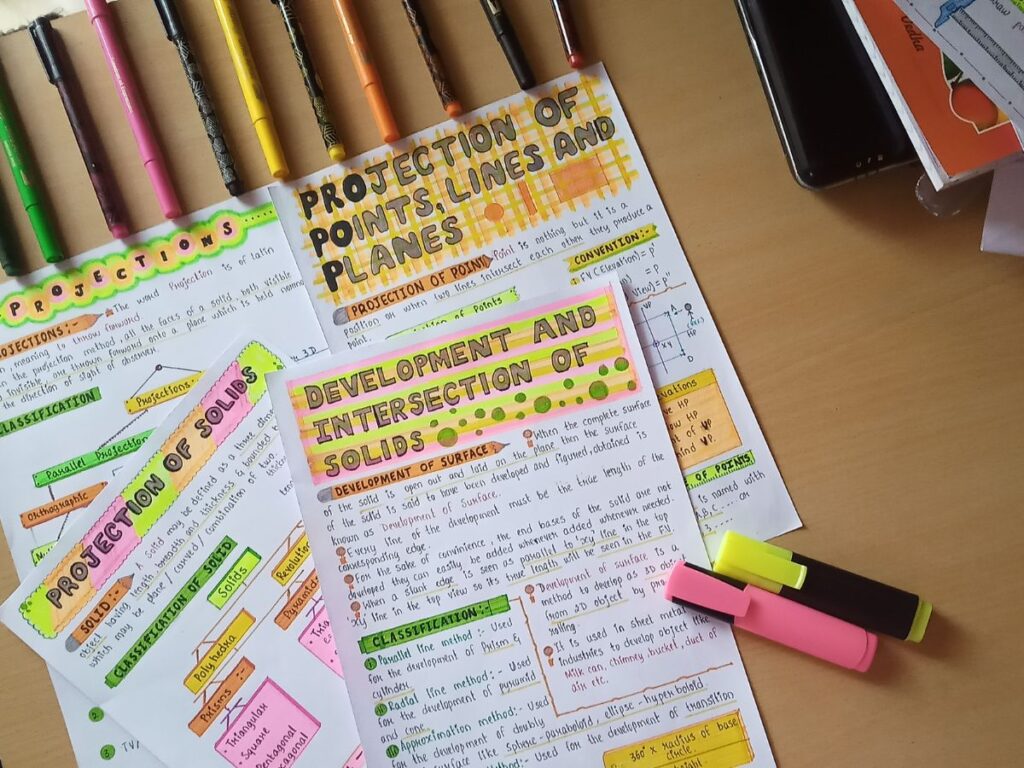 PROJECTIONS
PROJECTIONS:-
The word Projection is of latin
meaning to throw forward
the projection method, all the faces of a solid both visible
invisible, are thrown forward onto a plane which is held normal
the direction of sight of observer.
CLASSIFICATION
Projections
Parallel Projection
Orthographic
PROJECTION OF
POINTS, LINES AND
PLANES
PROJECTION OF POINT
Point is nothing but it is a
position or when two lines intersect each other they produce a
point.
of Points
CONVENTION:-
FV (Elevation) = P'
= P
View) = P"
VP
A
XY
D
ve HP
HP
of VP
VP.
OF POINTS
is named with
A,B,C...
PROJECTION OF SOLIDS
SOLID:-
A Solid may be defined as a three
object having length, breadth and thickness & bounded
which may be plane / curved / combination of two.
CLASSIFICATION OF SOLID
Solids
Polyhedra
Revolution
Prisms
Pyramids
Triangular
-Square
Pentagonal
DEVELOPMENT AND
INTERSECTION OF
SOLIDS
DEVELOPMENT OF SURFACE:-
When the complete surface
of the solid is open out and laid on the plane then the surface
of the solid is said to have been developed and figured, obtained is
known as Development of Surface.
Every line of the development must be the true length of the
corresponding edge.
For the sake of convinience, the end bases of the solid are not
developed they can easily be added whenever added whenever needed.
When a slant edge is seen as parallel to 'xy' line in the top
xy line in the top view so it's true length will be seen in the FV
CLASSIFICATION:-
Parallel line method :- Used
for the development of Prism &
cylinder.
Radial line method:- Used
for the development of pyramid
and cone.
Approximation method:- Used
for the development of doubly
surface like sphere-paraboloid, ellipse-hyperboloid.
method:- Used for the development of transition
Development of surface is a
method to develop as 3D object
from 2D object by
rolling.
It is used in sheet metal
industries to develop object like
Milk can, chimney, bucket, duct of
air etc.
360° x Radius of base
circle
height
Vedha